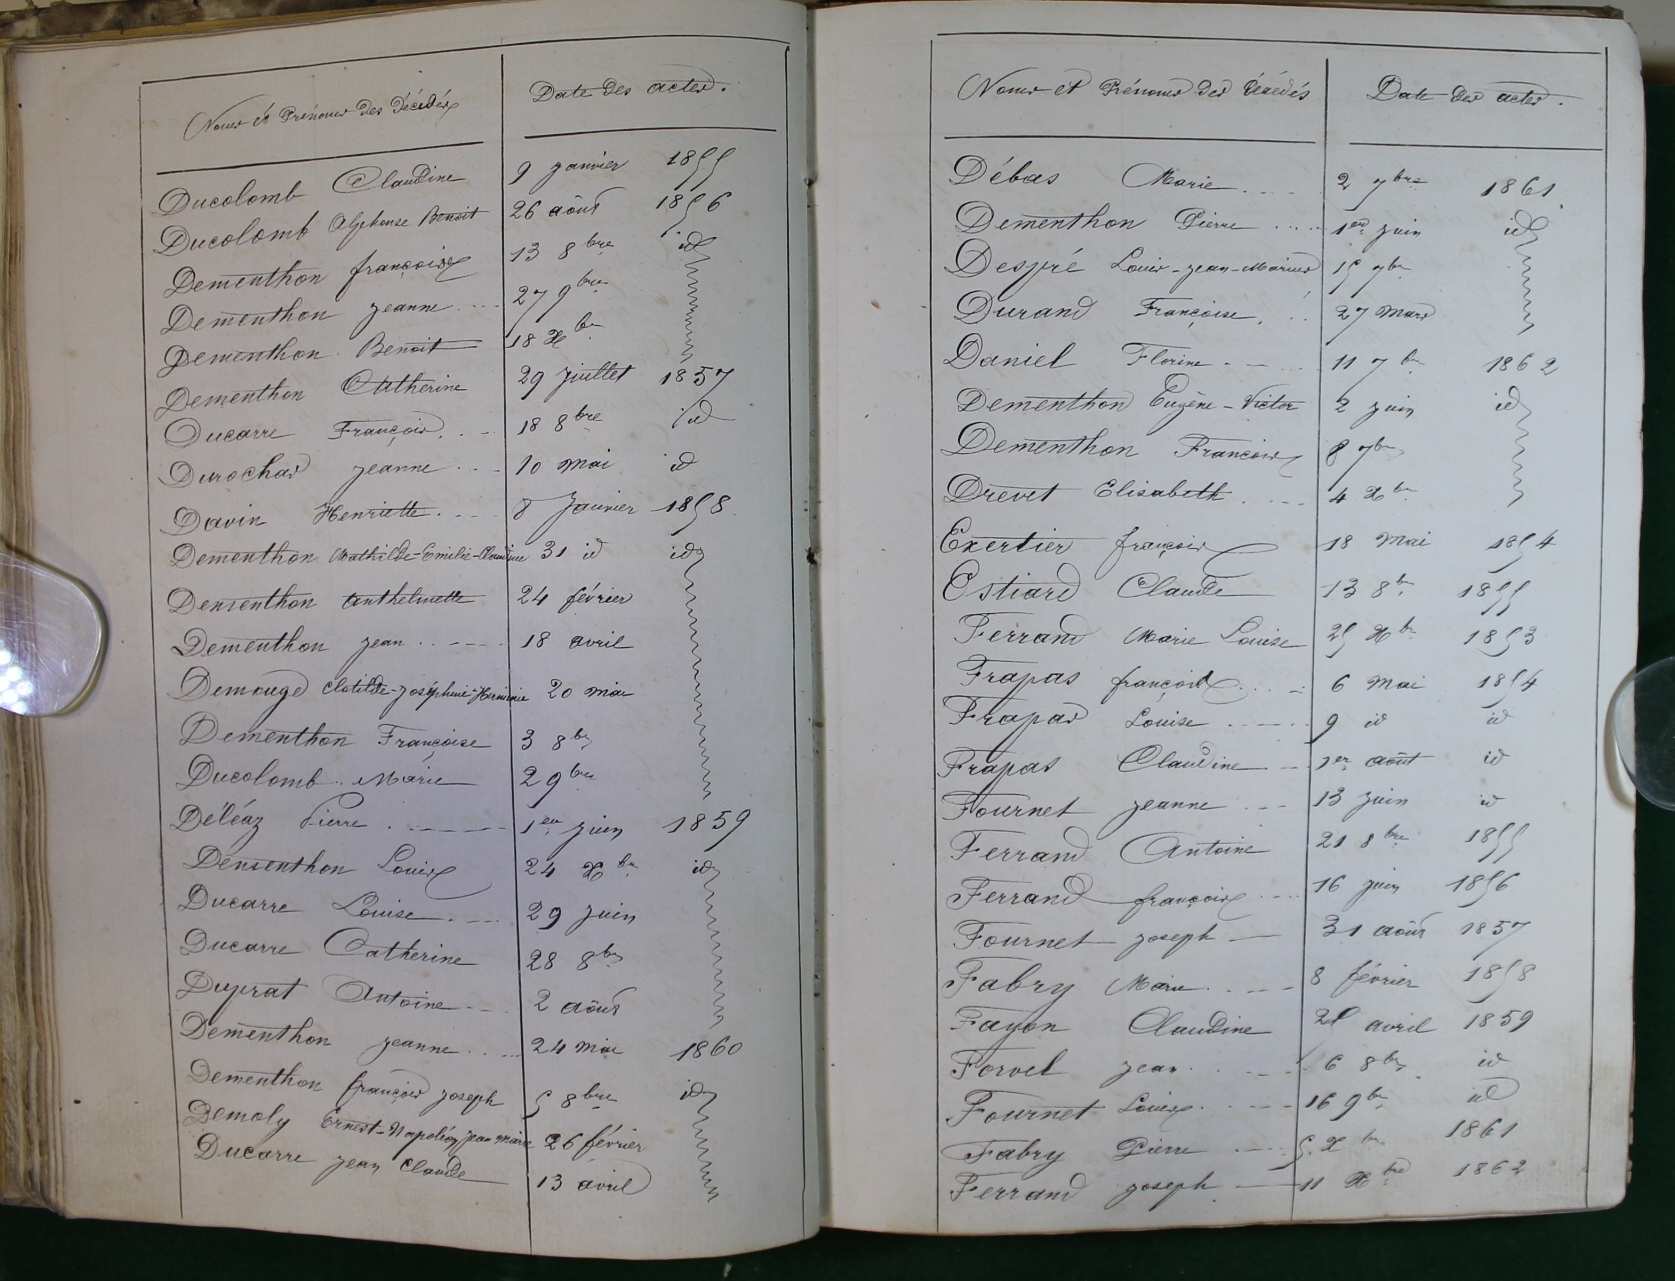 Noms et Prénoms des Décédés Date des actes.
Ducolomb Claudine 9 janvier 1855
Ducolomb Alphonse Benoit 26 août 1856
Dementhon françois 13 8bre id
Dementhon jeanne 27 9bre
Dementhon Benoit 18 Xbre
Dementhon Catherine 29 juillet 1857
Ducarre François 18 8bre id
Durochas jeanne 10 mai id
Davin Henriette 8 Janvier 1858
Dementhon Mathilde-Emilie-Claudine 31 id id
Dementhon Anthelmette 24 février
Dementhon jean 18 avril
Demouge Clotilde-joséphine-Herminie 20 mai
Dementhon Françoise 3 8bre
Ducolomb Marie 2 9bre
Déléaz Pierre 1er juin 1859
Dementhon Louis 24 Xbre id
Ducarre Louise 29 juin
Ducarre Catherine 28 8bre
Duprat Antoine 2 août
Dementhon jeanne 24 mai 1860
Dementhon françois joseph 5 8bre id
Demoly Ernest-Napoléon jean marie 26 février
Ducarre jean Claude 13 avril
Noms et Prénoms des Décédés Date des actes.
Débas Marie 2 7bre 1861
Dementhon Pierre 1er juin id
Despré Louis-jean-Marius 15 7bre
Durand Françoise 27 Mars
Daniel Florine 11 7bre 1862
Dementhon Eugène-Victor 2 juin id
Dementhon François 8 7bre
Drevet Elisabeth 4 Xbre
Exertier françois 18 Mai 1854
Estiard Claude 13 8bre 1855
Ferrand Marie Louise 25 Xbre 1853
Frapas françois 6 Mai 1854
Frapas Louise 9 id id
Frapas Claudine 1er août id
Fournet jeanne 13 juin id
Ferrand Antoine 21 8bre 1855
Ferrand françois 16 juin 1856
Fournet joseph 31 août 1857
Fabry Marie 8 février 1858
Fayon Claudine avril 1859
Forvet jean 6 8bre id
Fournet Louis 16 9bre id
Fabry Pierre 5 Xbre 1861
Ferrand joseph 11 Xbre 1862